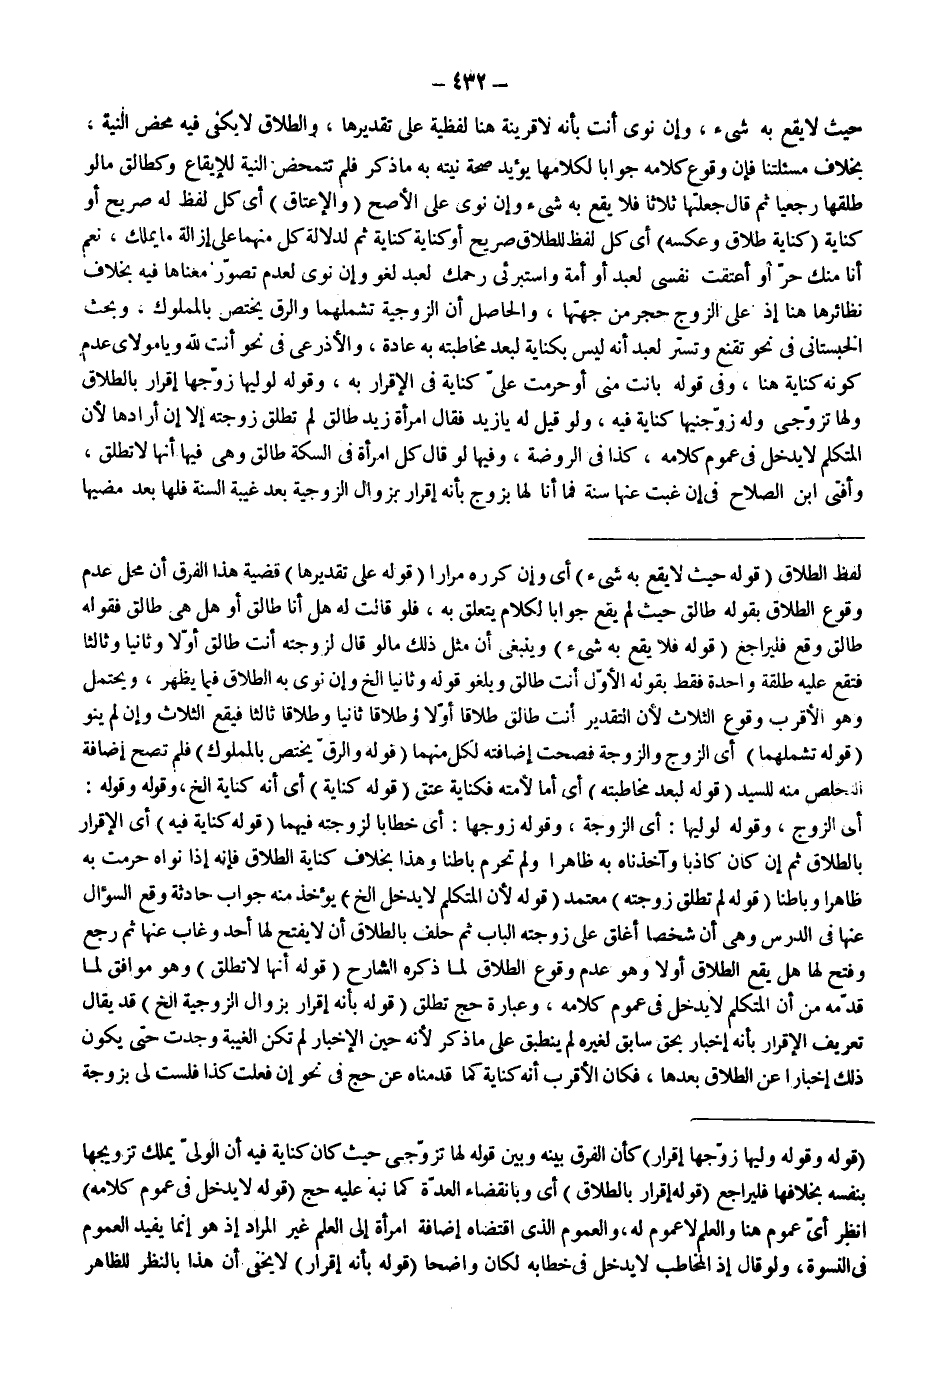 - ٤٣٢ -
حيث لايقع به شىء ، وإن نوى أنت بأنه لاقرينة هنا لفظية على تقديرها ، والطلاق لايكفى فيه محض النية ،
بخلاف مسئلتنا فإن وقوع كلامه جوابا لكلامها يؤيد صحة نيته به ماذكر فلم تتمحض النية للإيقاع وكطالق مالو
طلقها رجعيا ثم قال جعلتها ثلاثا فلا يقع به شىء وإن نوى على الأصح ( والإعتاق ) أى كل لفظ له صريح أو
كناية ( كناية طلاق وعكسه ) أى كل لفظ للطلاق صريح أو كناية كناية ثم لدلالة كل منهما على إزالة مايملك ، نعم
أنا منك حرّ أو أعتقت نفسى لعبد أو أمة واستبرئى رحمك لعبد لغو وإن نوى لعدم تصوّر معناها فيه بخلاف
نظائرها هنا إذ على الزوج حجر من جهتها ، والحاصل أن الزوجية تشملهما والرق يختص بالمملوك . وبحث
الحبستانى فى نحو تقنع وتستر لعبد أنه ليس بكناية لبعد مخاطبته به عادة ، والأذرعى فى نحو أنت لله ويامولاى عدم
كونه كناية هنا ، وفى قوله بانت منى أو حرمت علىّ كناية فى الإقرار به ، وقوله لوليها زوّجها إقرار بالطلاق
ولها تزوّجى وله زوّجنيها كناية فيه ، ولو قيل له يازيد فقال امرأة زيد طالق لم تطلق زوجته إلا إن أرادها لأن
المتكلم لايدخل فى عموم كلامه ، كذا فى الروضة ، وفيها لو قال كل امرأة فى السكة طالق وهى فيها أنها لاتطلق ،
وأفتى ابن الصلاح فى إن غبت عنها سنة فما أنا لها بزوج بأنه إقرار بزوال الزوجية بعد غيبة السنة فلها بعد مضيها
لفظ الطلاق ( قوله حيث لايقع به شىء ) أى وإن كرره مرارا ( قوله على تقديرها ) قضية هذا الفرق أن محل عدم
وقوع الطلاق بقوله طالق حيث لم يقع جوابا لكلام يتعلق به ، فلو قالت له هل أنا طالق أو هل هى طالق فقوله
طالق وقع فليراجع ( قوله فلا يقع به شىء ) وينبغى أن مثل ذلك مالو قال لزوجته أنت طالق أوّلا وثانيا وثالثا
فتقع عليه طلقة واحدة فقط بقوله الأوّل أنت طالق ويلغو قوله وثانيا الخ وإن نوى به الطلاق فيما يظهر ، ويحتمل
وهو الأقرب وقوع الثلاث لأن التقدير أنت طالق طلاقا أوّلا وطلاقا ثانيا وطلاقا ثالثا فيقع الثلاث وإن لم ينو
( قوله تشملهما ) أى الزوج والزوجة فصحت إضافته لكل منهما ( قوله والرقّ يختص بالمملوك ) فلم تصح إضافة
التخلص منه للسيد ( قوله لبعد مخاطبته ) أى أما لأمته فكناية عتق ( قوله كناية ) أى أنه كناية الخ ، وقوله وقوله :
أى الزوج ، وقوله لوليها : أى الزوجة ، وقوله زوجها : أى خطابا لزوجته فيهما ( قوله كناية فيه ) أى الإقرار
بالطلاق ثم إن كان كاذبا وآخذناه به ظاهرا ولم تحرم باطنا وهذا بخلاف كناية الطلاق فإنه إذا نواه حرمت به
ظاهرا وباطنا ( قوله لم تطلق زوجته ) معتمد ( قوله لأن المتكلم لايدخل الخ ) يؤخذ منه جواب حادثة وقع السؤال
عنها فى الدرس وهى أن شخصا أغلق على زوجته الباب ثم حلف بالطلاق أن لايفتح لها أحد وغاب عنها ثم رجع
وفتح لها هل يقع الطلاق أولا وهو عدم وقوع الطلاق لما ذكره الشارح ( قوله أنها لاتطلق ) وهو موافق لما
قدّمه من أن المتكلم لايدخل فى عموم كلامه ، وعبارة حج تطلق ( قوله بأنه إقرار بزوال الزوجية الخ ) قد يقال
تعريف الإقرار بأنه إخبار بحق سابق لغيره لم ينطبق على ماذكر لأنه حين الإخبار لم تكن الغيبة وجدت حتى يكون
ذلك إخبارا عن الطلاق بعدها ، فكان الأقرب أنه كناية كما قدمناه عن حج فى نحو إن فعلت كذا فلست لى بزوجة
(قوله وقوله وليها زوّجها إقرار) كأن الفرق بينه وبين قوله لها تزوّجى حيث كان كناية فيه أن الولىّ يملك تزويجها
بنفسه بخلافها فليراجع (قوله إقرار بالطلاق ) أى وبانقضاء العدّة كما نبه عليه حج (قوله لايدخل فى عموم كلامه)
انظر أىّ عموم هنا والعلم لاعموم له ، والعموم الذى اقتضاه إضافة امرأة إلى العلم غير المراد إذ هو إنما يفيد العموم
فى النسوة ، ولو قال إذ المخاطب لايدخل فى خطابه لكان واضحا (قوله بأنه إقرار) لايخفى أن هذا بالنظر للظاهر